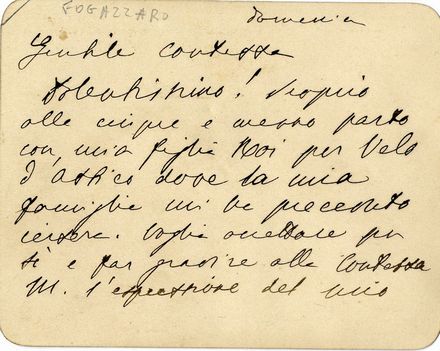 FOGAZZARO
domenica
Gentile contessa
Dolentissimo! Proprio
alle cinque e mezzo parto
con mia figlia Roi per Velo
d'Astico dove la mia
famiglia mi ha preceduto
iersera. Voglia accettare per
sè e far gradire alla Contessa
M. l'espressione del mio